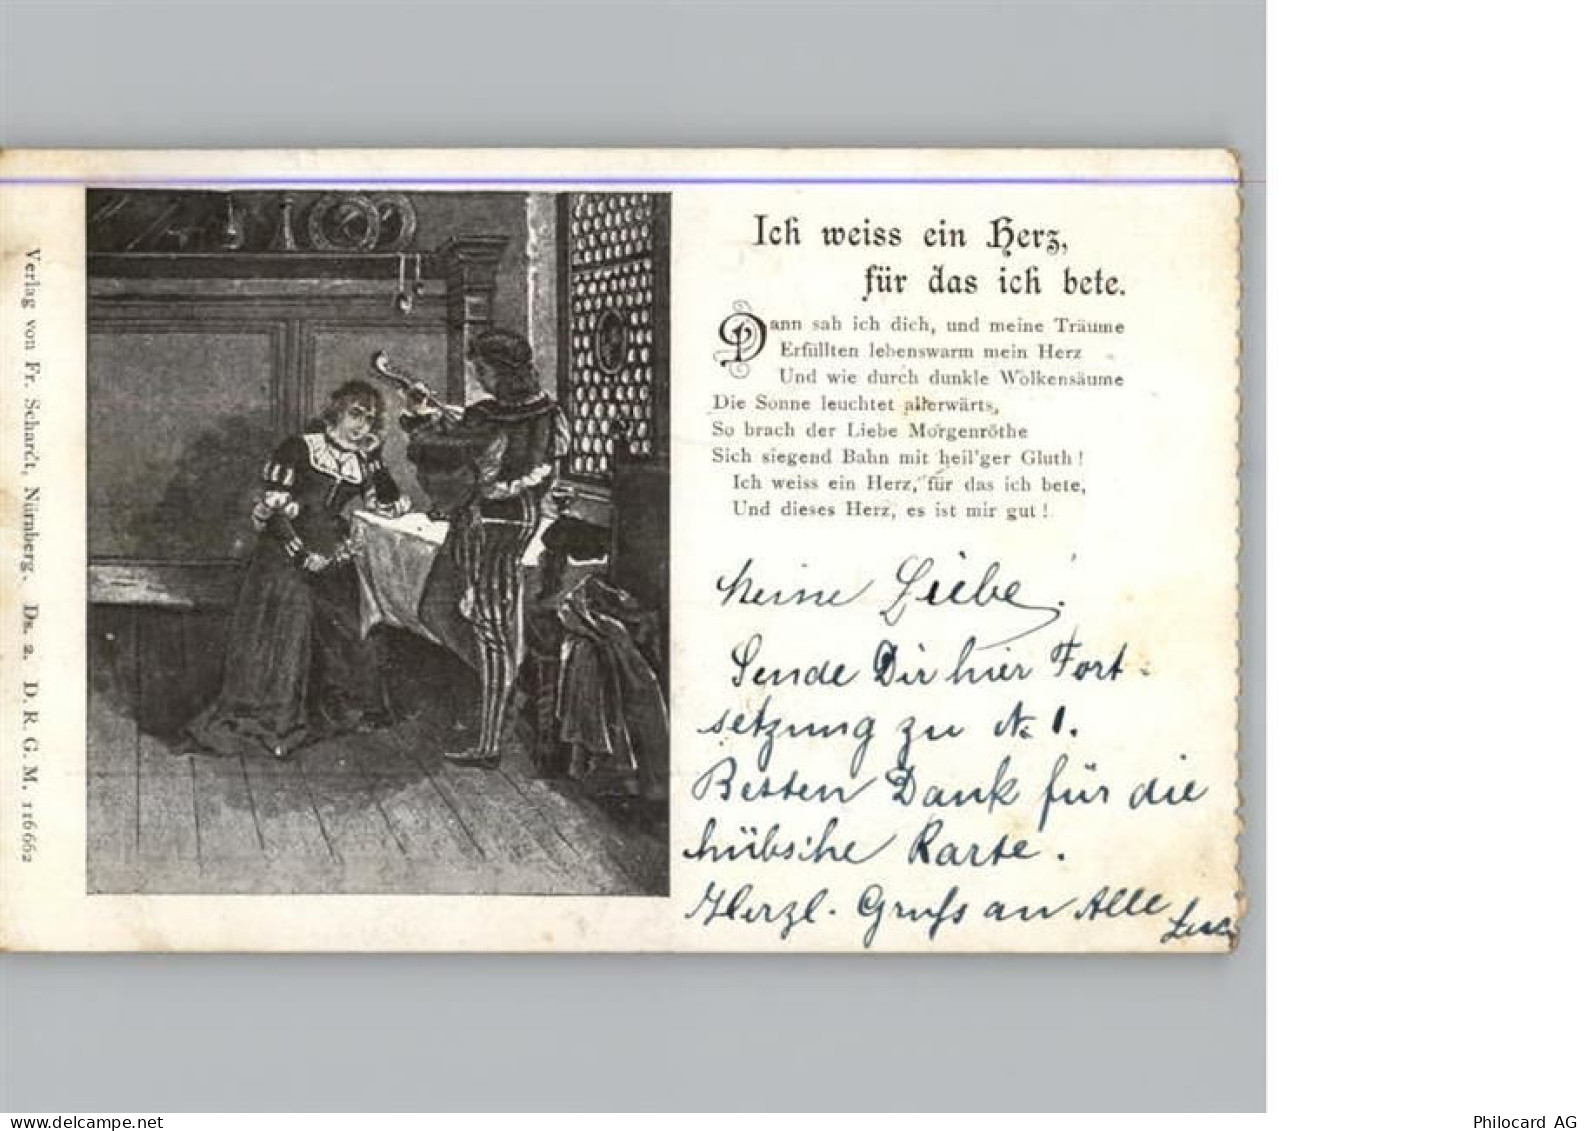 Ich weiss ein Herz,
für das ich bete.
Dann sah ich dich, und meine Träume
Erfüllten lebenswarm mein Herz
Und wie durch dunkle Wolkensäume
Die Sonne leuchtet allerwärts,
So brach der Liebe Morgenröthe
Sich siegend Bahn mit heil'ger Gluth!
Ich weiss ein Herz, für das ich bete,
Und dieses Herz, es ist mir gut!
Meine Liebe!
Sende Dir hier Fort-
setzung zu No 1.
Besten Dank für die
hübsche Karte.
Herzl. Gruss an Alle
Verlag von Fr. Schardt, Nürnberg. Ds. 2. D. R. G. M. 116662
Philocard AG
delcampe.net